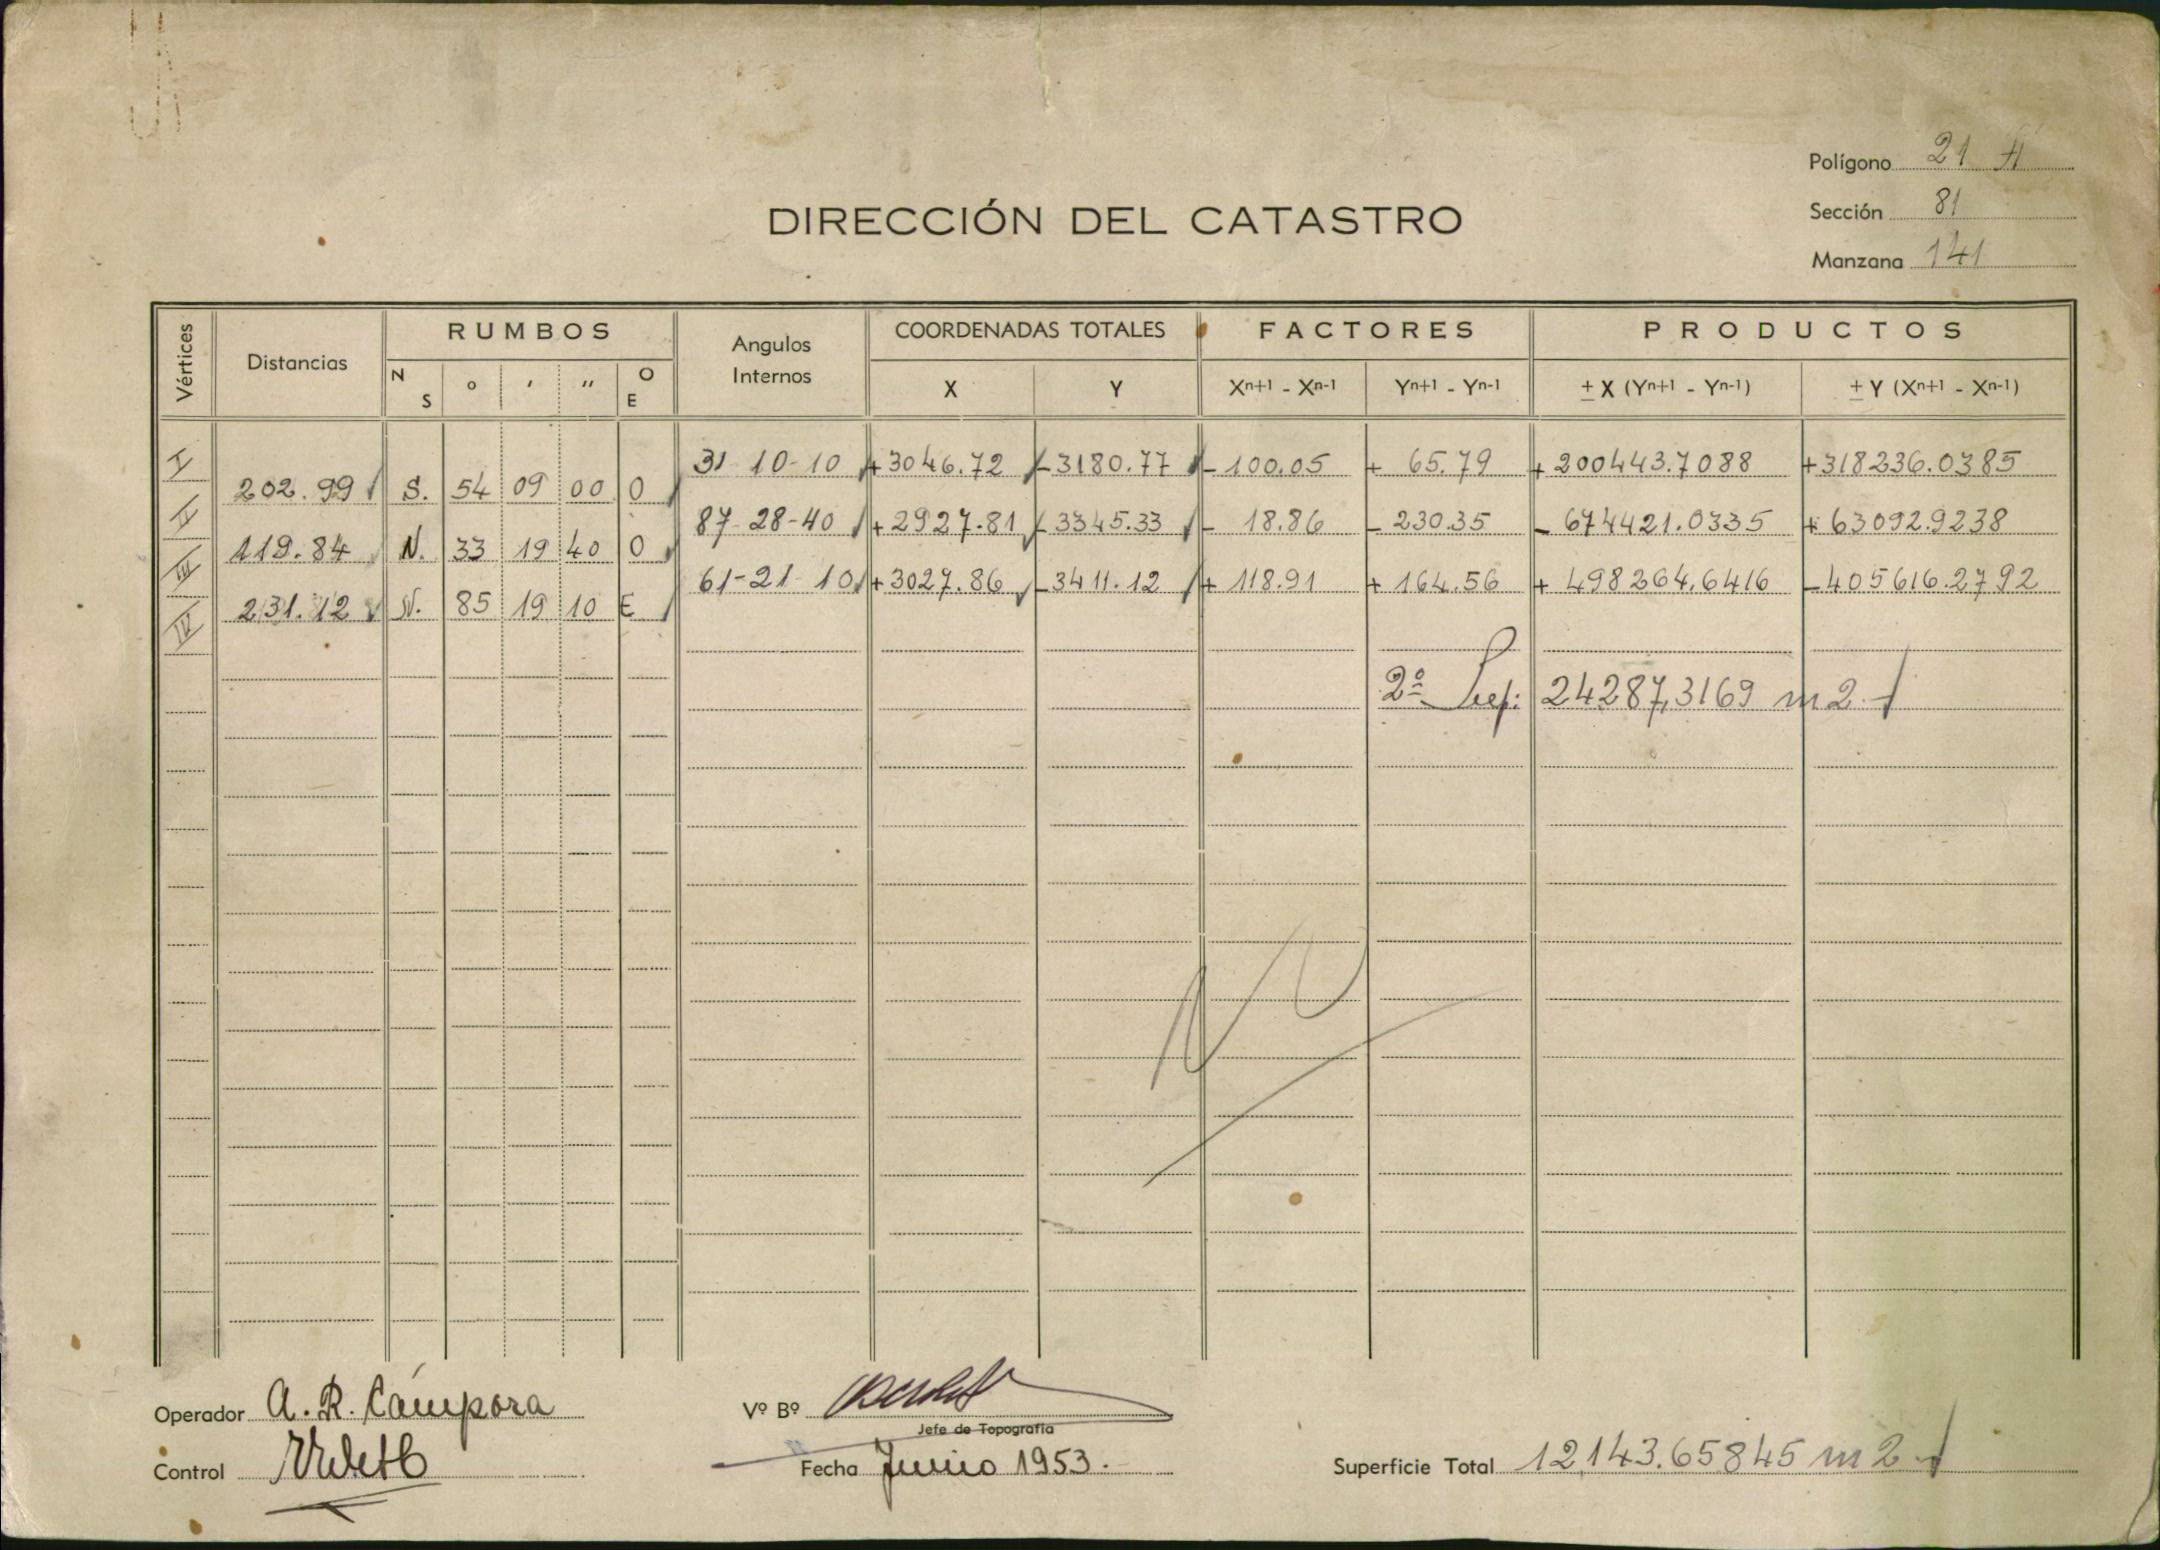 Polígono 21 A
Sección 81
Manzana 141
DIRECCIÓN DEL CATASTRO
Vértices Distancias RUMBOS Angulos Internos COORDENADAS TOTALES FACTORES PRODUCTOS
N S o ' '' O E X Y Xn+1 - Xn-1 Yn+1 - Yn-1 ± X (Yn+1 - Yn-1) ± Y (Xn+1 - Xn-1)
I 31 10-10 +3046.72 -3180.77 -100.05 + 65.79 +200443.7088 +318236.0385
202.99 S. 54 09 00 O
II 87-28-40 +2927.81 -3345.33 - 18.86 -230.35 -674421.0335 +63092.9238
119.84 N. 33 19 40 O
III 61-21 10 +3027.86 -3411.12 + 118.91 + 164.56 + 498264.6416 -405616.2792
231.12 N. 85 19 10 E
IV
2º Sup: 24287,3169 m2.
Operador A. R. Cámpora
Vº Bº
Jefe de Topografía
Control
Fecha Junio 1953.
Superficie Total 12,143.65845 m2.